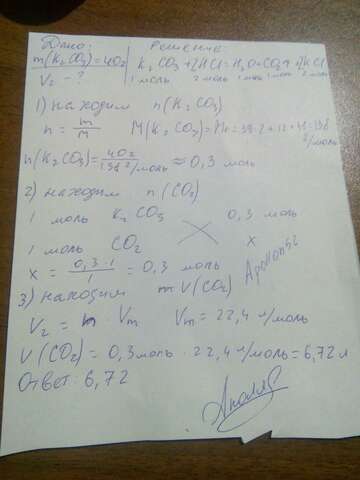 Дано: Решение
m(K₂CO₃)=40г K₂CO₃+2HCl=H₂O+CO₂↑+2KCl
V₂ - ? 1 моль 2 моль 1 моль 1 моль 2 моль
1) находим n(K₂CO₃)
n = m/M M(K₂CO₃)=Mr=39·2+12+48=138 г/моль
n(K₂CO₃)=40г/138 г/моль ≈ 0,3 моль
2) находим n(CO₂)
1 моль K₂CO₃ 0,3 моль
1 моль CO₂ x
x = 0,3·1/1 = 0,3 моль
Apollon52
3) находим V(CO₂)
V₂ = n · Vm Vm = 22,4 л/моль
V(CO₂) = 0,3моль · 22,4 л/моль = 6,72 л
Ответ: 6,72